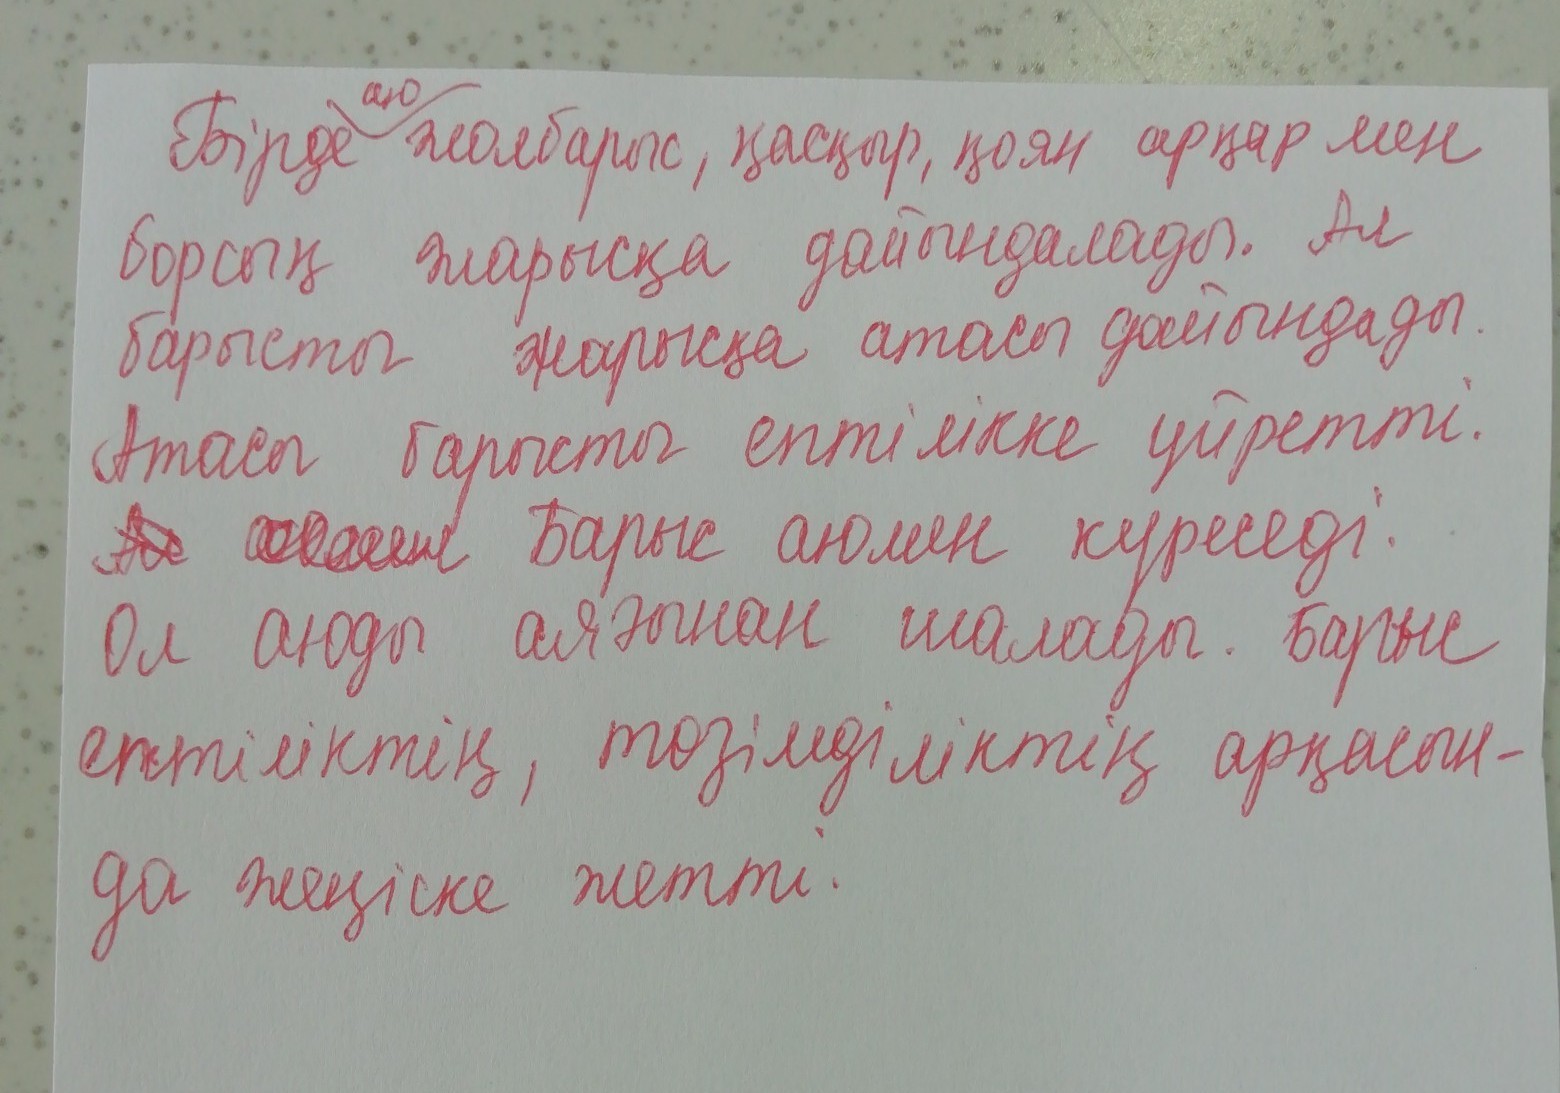 Бірде аю жолбарыс, қасқыр, қоян арқар мен
борсық жарысқа дайындалады. Ал
барысты жарысқа атасы дайындады.
Атасы барысты ептілікке үйретті.
Барыс аюмен күреседі.
Ол аюды аяғынан шалады. Барыс
ептіліктің, төзімділіктің арқасын-
да жеңіске жетті.